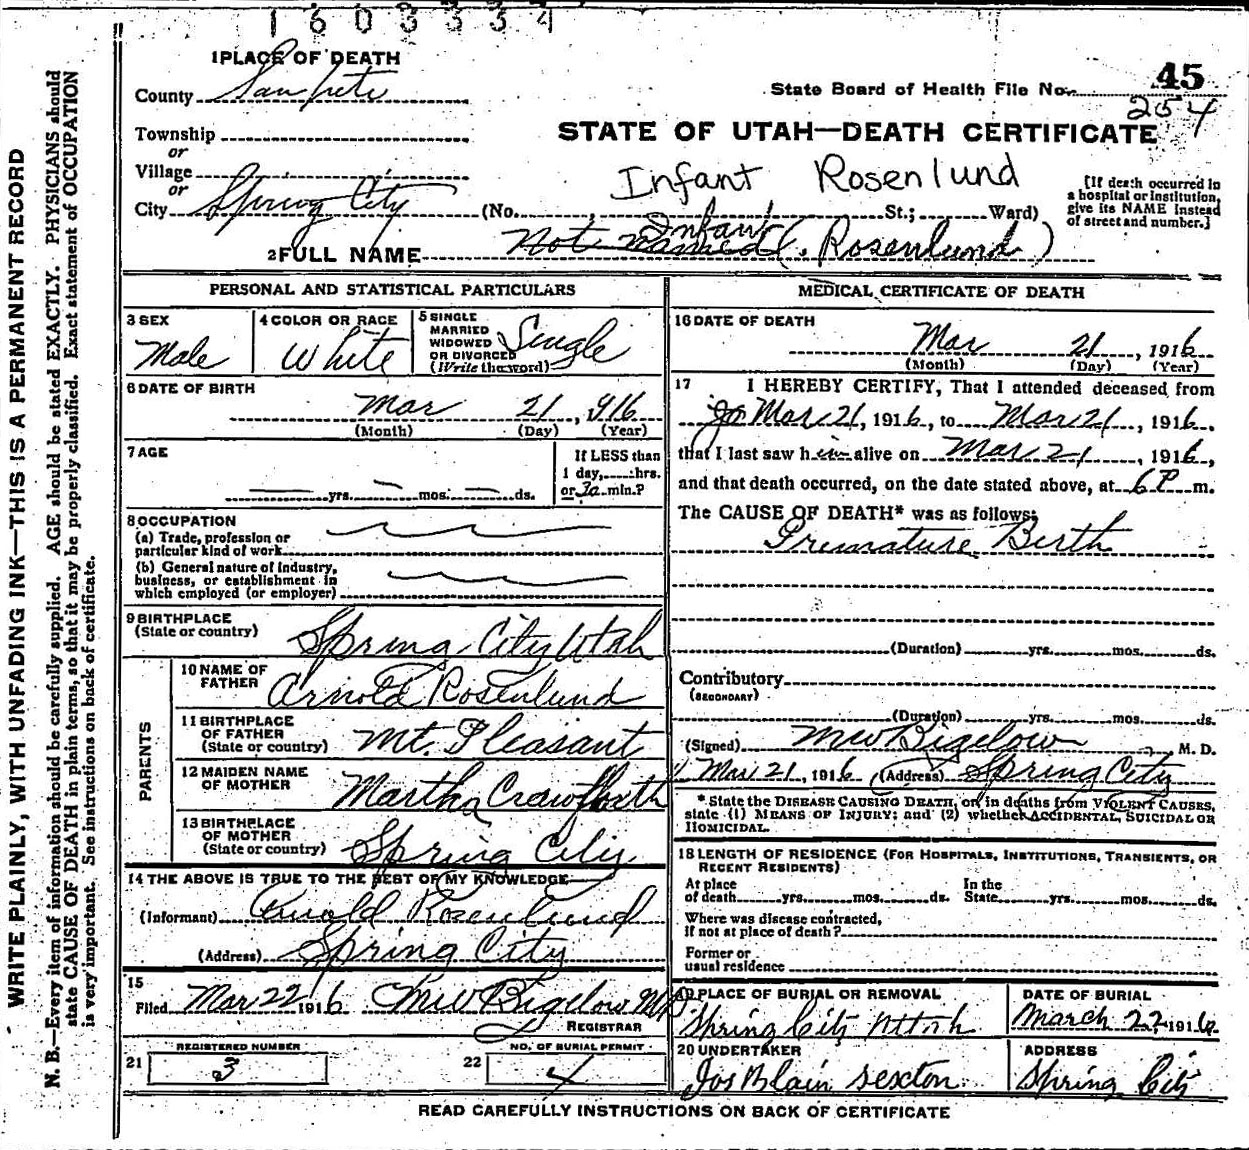 1603334
1 PLACE OF DEATH
County Sanpete
State Board of Health File No. 45
254
Township
or
Village
or
City Spring City
STATE OF UTAH—DEATH CERTIFICATE
Infant Rosenlund
(No. , St.; Ward)
[If death occurred in a hospital or institution, give its NAME instead of street and number.]
Infant
2 FULL NAME Not Named (Rosenlund)
PERSONAL AND STATISTICAL PARTICULARS
3 SEX
Male
4 COLOR OR RACE
White
5 SINGLE
MARRIED
WIDOWED
OR DIVORCED
(Write the word)
Single
6 DATE OF BIRTH
Mar 21, 916
(Month) (Day) (Year)
7 AGE
yrs. mos. ds.
If LESS than
1 day, hrs.
or 30 min.?
8 OCCUPATION
(a) Trade, profession or
particular kind of work
(b) General nature of industry,
business, or establishment in
which employed (or employer)
9 BIRTHPLACE
(State or country) Spring City Utah
PARENTS
10 NAME OF
FATHER Arnold Rosenlund
11 BIRTHPLACE
OF FATHER
(State or country) Mt. Pleasant
12 MAIDEN NAME
OF MOTHER Martha
13 BIRTHPLACE
OF MOTHER
(State or country) Spring City
14 THE ABOVE IS TRUE TO THE BEST OF MY KNOWLEDGE
(Informant) Arnold Rosenlund
(Address) Spring City
15
Filed Mar 22 1916 Bigelow MD
REGISTRAR
21 REGISTERED NUMBER
3
22 NO. OF BURIAL PERMIT
4
MEDICAL CERTIFICATE OF DEATH
16 DATE OF DEATH
Mar 21, 1916
(Month) (Day) (Year)
17 I HEREBY CERTIFY, That I attended deceased from
Mar 21, 1916, to Mar 21, 1916,
that I last saw him alive on Mar 21, 1916,
and that death occurred, on the date stated above, at 6 P m.
The CAUSE OF DEATH* was as follows:
Premature Birth
(Duration) yrs. mos. ds.
Contributory
(SECONDARY)
(Duration) yrs. mos. ds.
(Signed) Bigelow, M. D.
Mar 21, 1916 (Address) Spring City
*State the DISEASE CAUSING DEATH, or, in deaths from VIOLENT CAUSES,
state (1) MEANS OF INJURY; and (2) whether ACCIDENTAL, SUICIDAL OR
HOMICIDAL.
18 LENGTH OF RESIDENCE (FOR HOSPITALS, INSTITUTIONS, TRANSIENTS, OR
RECENT RESIDENTS)
At place In the
of death yrs. mos. ds. State yrs. mos. ds.
Where was disease contracted,
If not at place of death?
Former or
usual residence
19 PLACE OF BURIAL OR REMOVAL
Spring City Utah
DATE OF BURIAL
March 22 1916
20 UNDERTAKER
Jos Blain sexton
ADDRESS
Spring City
READ CAREFULLY INSTRUCTIONS ON BACK OF CERTIFICATE
WRITE PLAINLY, WITH UNFADING INK—THIS IS A PERMANENT RECORD
N. B.—Every item of information should be carefully supplied. AGE should be stated EXACTLY. PHYSICIANS should
state CAUSE OF DEATH in plain terms, so that it may be properly classified. Exact statement of OCCUPATION
is very important. See instructions on back of certificate.